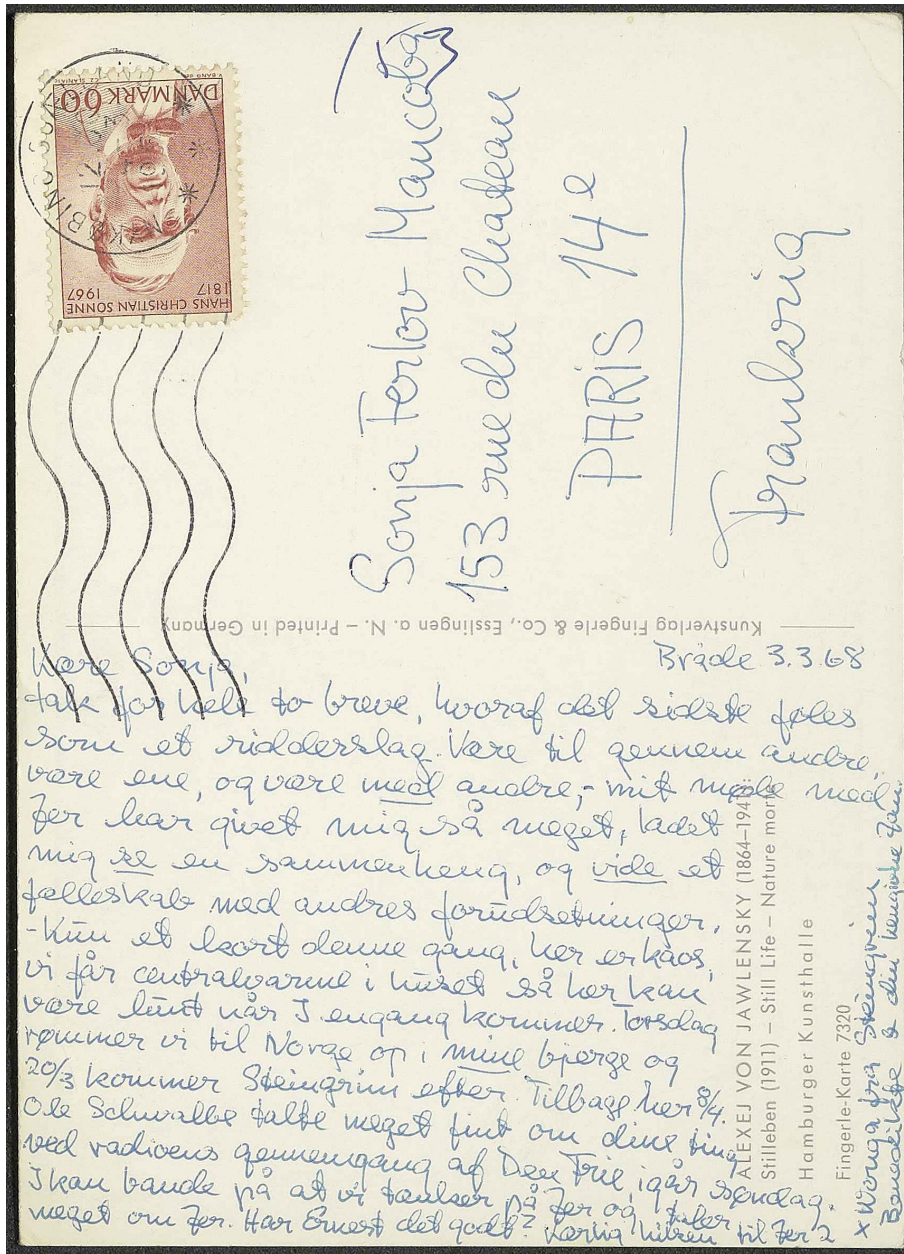 DANMARK 60
HANS CHRISTIAN SONNE
1817 1967
Sonja Ferlov Mancoba
153 rue du Chateau
PARIS 14e
Frankrig
Kunstverlag Fingerle & Co., Esslingen a. N. – Printed in Germany
Bråde 3.3.68
Kære Sonja,
tak for hele to breve, hvoraf det sidste føles
som et ridderslag. Være til gennem andre,
være ene, og være med andre,- mit møde med
Jer har givet mig så meget, ladet
mig se en sammenheng, og vide et
fælleskab med andres forudsetninger.
-Kun et kort denne gang, her er kaos,
vi får centralvarme i huset så her kan
være lunt når I engang kommer. Torsdag
rømmer vi til Norge op i mine bjerge og
20/3 kommer Steingrim efter. Tilbage her 8/4.
Ole Schwalbe talte meget fint om dine ting
ved radioens gennemgang af Den Frie, igår søndag.
I kan bande på at vi tænker på Jer og taler
meget om Jer. Har Ernest det godt? Kærlig hilsen til Jer 2
x Wonga fra Steingrim
Benedikte & den hengivne Jan.
ALEXEJ VON JAWLENSKY (1864–1941):
Stilleben (1911) – Still Life – Nature morte
Hamburger Kunsthalle
Fingerle-Karte 7320